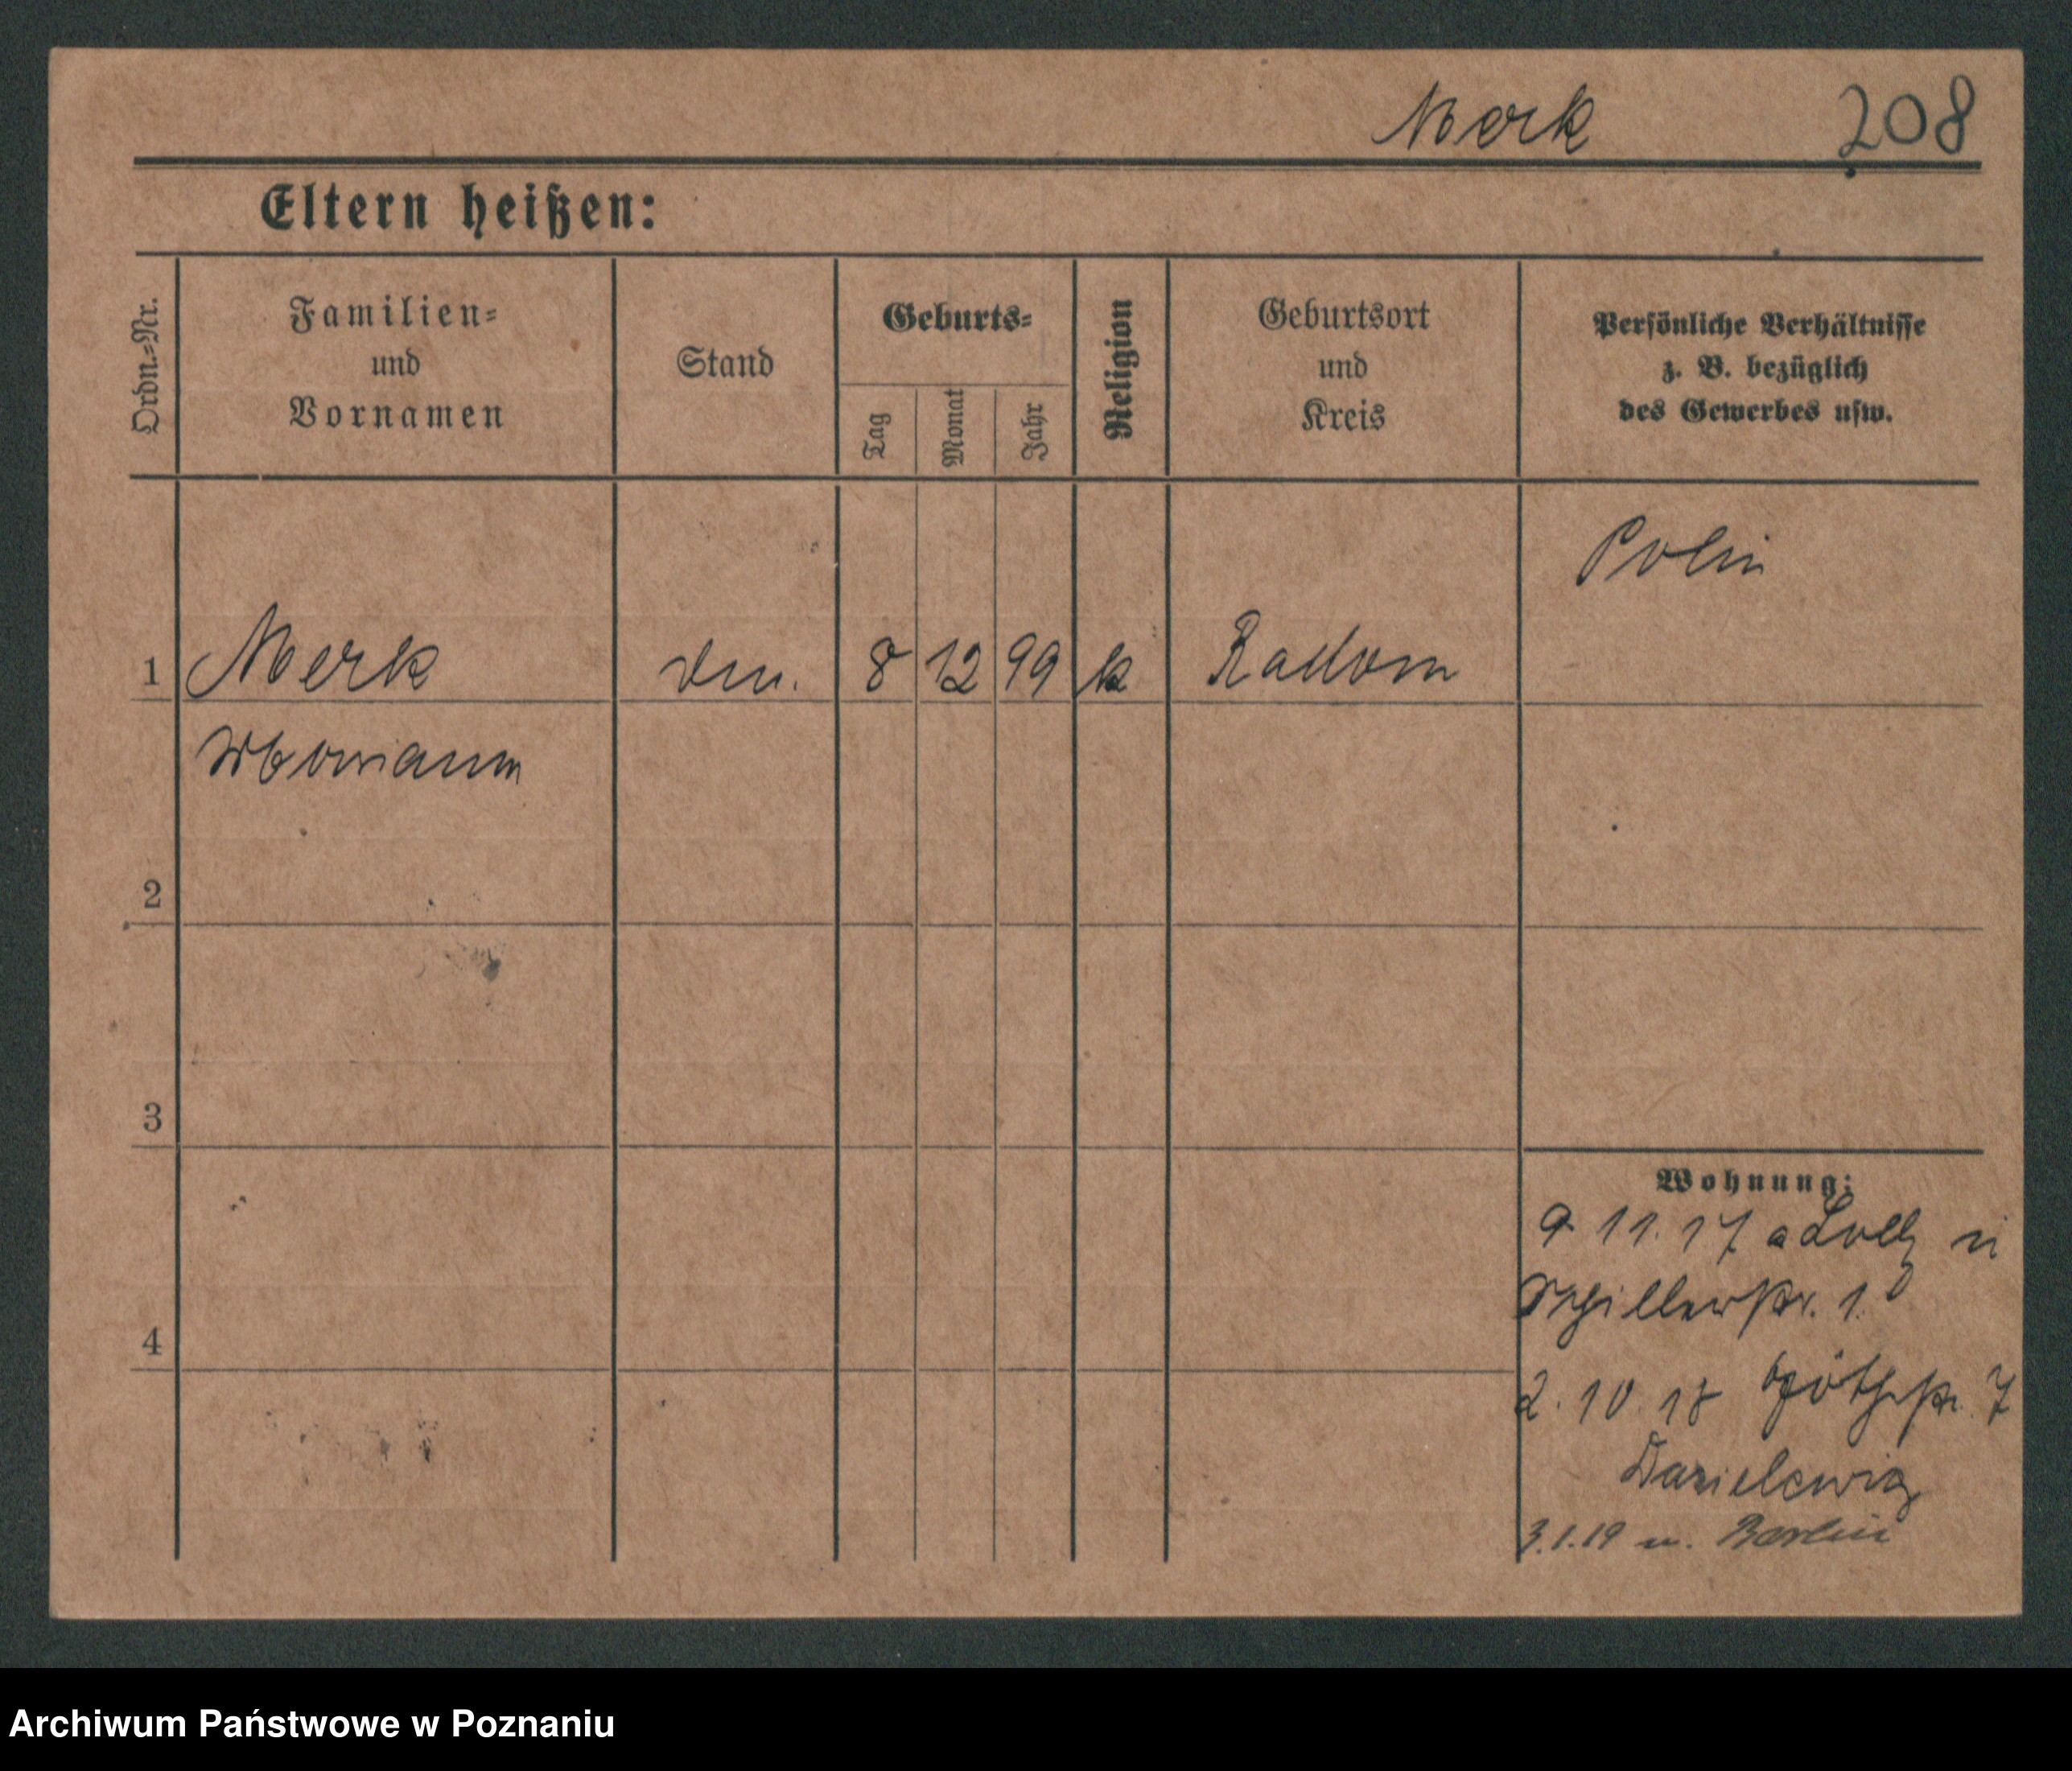 Merk 208
Eltern heißen:
Ordn.-Nr.
Familien-
und
Vornamen
Stand
Geburts-
Tag
Monat
Jahr
Religion
Geburtsort
und
Kreis
Persönliche Verhältnisse
z. B. bezüglich
des Gewerbes usw.
Polin
1 Merk 8 12 99 k Radom
2
3
Wohnung:
9 11. 17 a
Schillerstr. 1.
4
2. 10. 18 7
3.1.19 n. Berlin
Archiwum Państwowe w Poznaniu